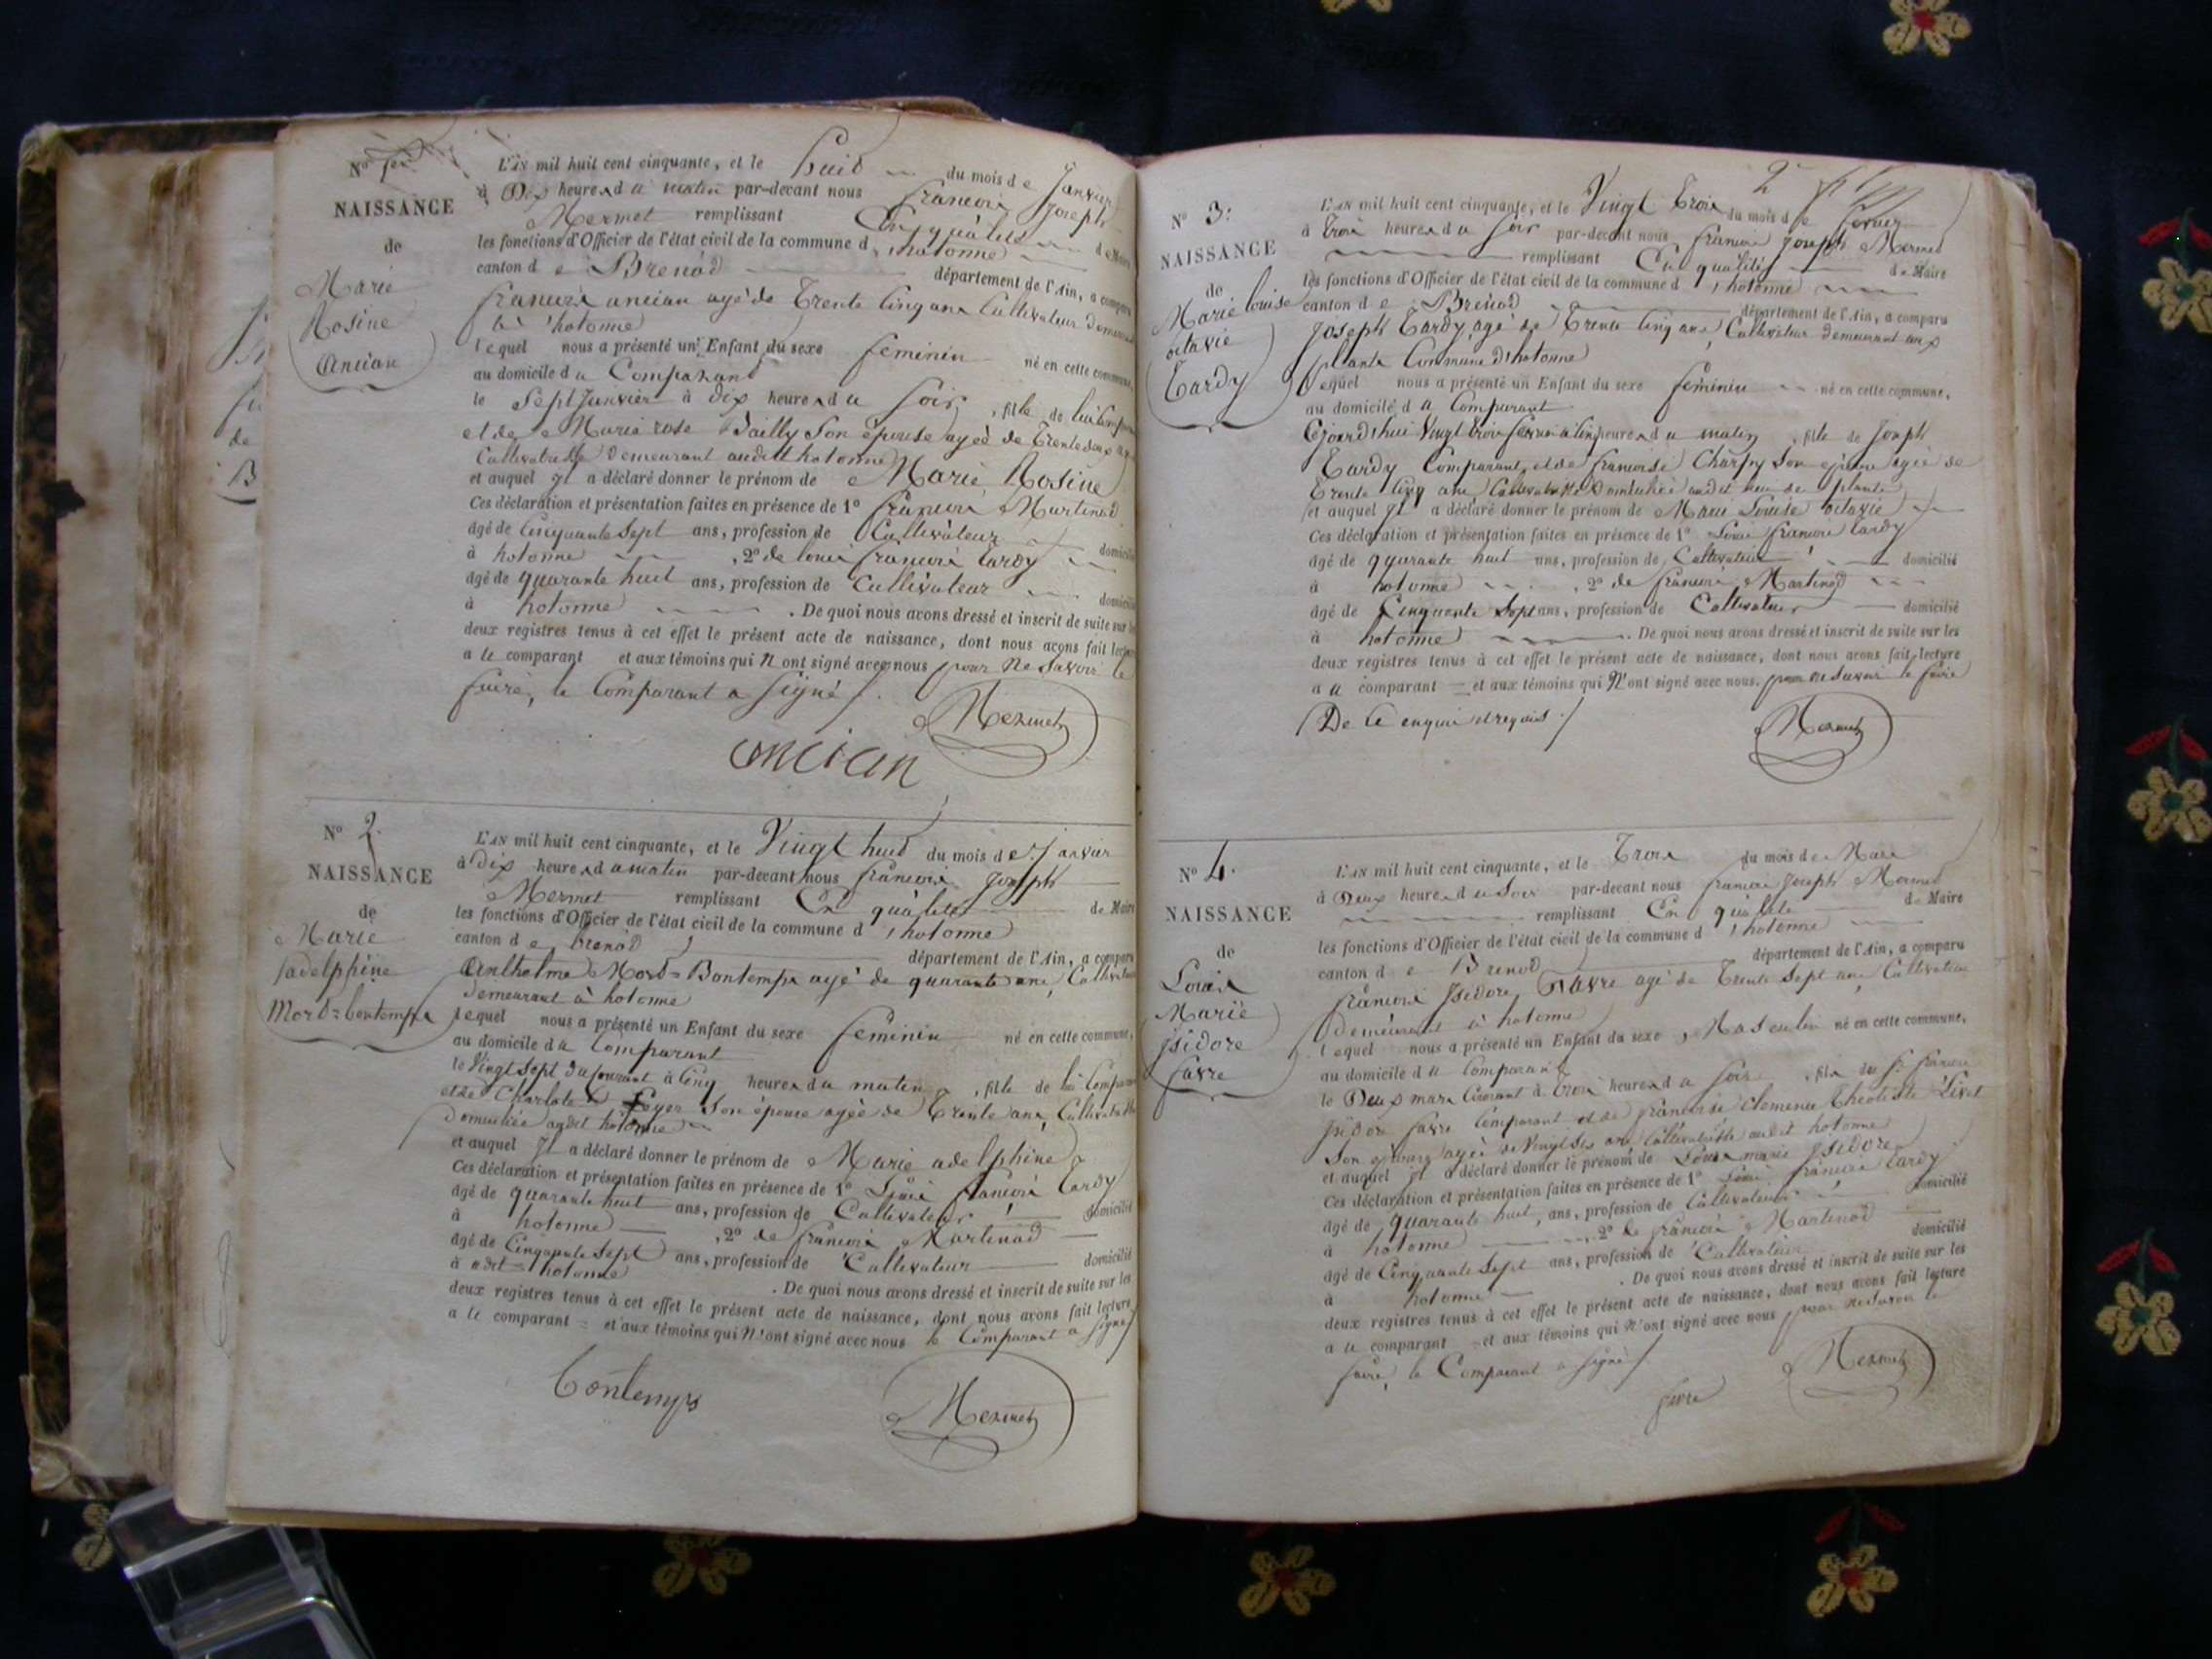 No 1er
NAISSANCE
de
Marie
Rosine
Ancian
L'AN mil huit cent cinquante, et le huit du mois de Janvier
à Dix heures du matin par-devant nous francois Joseph
Mermet remplissant En qualité de Maire
les fonctions d'Officier de l'état civil de la commune d'hotonne
canton de Brenod département de l'Ain, a comparu
francois ancian agé de Trente Cinq ans Cultivateur demeurant
à hotonne
lequel nous a présenté un Enfant du sexe feminin né en cette commune,
au domicile du Comparant
le Sept Janvier à dix heures du soir, fille de lui Comparant
et de Marie rose Bailly son épouse agée de Trente deux ans
Cultivatrice demeurant audit hotonne
et auquel il a déclaré donner le prénom de Marie Rosine
Ces déclaration et présentation faites en présence de 1° francois Martinod
âgé de Cinquante Sept ans, profession de Cultivateur domicilié
à hotonne, 2° de louis francois tardy
âgé de quarante huit ans, profession de Cultivateur domicilié
à hotonne. De quoi nous avons dressé et inscrit de suite sur les
deux registres tenus à cet effet le présent acte de naissance, dont nous avons fait lecture
au comparant et aux témoins qui n'ont signé avec nous pour ne savoir le
faire, le Comparant a signé
Mermet
ancian
No 2.
NAISSANCE
de
Marie
adelphine
Mord=bontemps
L'AN mil huit cent cinquante, et le Vingt huit du mois de Janvier
à Dix heures du matin par-devant nous francois Joseph
Mermet remplissant En qualité de Maire
les fonctions d'Officier de l'état civil de la commune d'hotonne
canton de brenod département de l'Ain, a comparu
Anthelme Mord=Bontemps agé de quarante ans, Cultivateur
demeurant à hotonne
lequel nous a présenté un Enfant du sexe feminin né en cette commune,
au domicile du Comparant
le Vingt Sept du Courant à Cinq heures du matin, fille de lui Comparant
et de Charlote son épouse agée de Trente ans, Cultivatrice
Domiciliée audit hotonne
et auquel il a déclaré donner le prénom de Marie adelphine
Ces déclaration et présentation faites en présence de 1° Louis francois tardy
âgé de quarante huit ans, profession de Cultivateur domicilié
à hotonne, 2° de francois Martinod
âgé de Cinquante Sept ans, profession de Cultivateur domicilié
à hotonne. De quoi nous avons dressé et inscrit de suite sur les
deux registres tenus à cet effet le présent acte de naissance, dont nous avons fait lecture
au comparant = et aux témoins qui n'ont signé avec nous le Comparant a signé
bontemps
Mermet
No 3.
NAISSANCE
de
Marie louise
octavie
Tardy
L'AN mil huit cent cinquante, et le Vingt Trois du mois de fevrier
à trois heures du soir par-devant nous francois joseph Mermet
remplissant En qualité de Maire
les fonctions d'Officier de l'état civil de la commune d'hotonne
canton de Brenod département de l'Ain, a comparu
Joseph Tardy, agé de Trente Cinq ans, Cultivateur demeurant aux
plants Commune d'hotonne
lequel nous a présenté un Enfant du sexe feminin né en cette commune,
au domicile du Comparant
Cejourd'hui Vingt trois fevrier à Cinq heures du matin, fille de Joseph
Tardy Comparant, et de francoise Charpy son épouse agée de
Trente Cinq ans Cultivatrice Domiciliée audit lieu de plants
et auquel il a déclaré donner le prénom de Marie Louise octavie
Ces déclaration et présentation faites en présence de 1° Louis francois tardy
âgé de quarante huit ans, profession de Cultivateur domicilié
à hotonne, 2° de francois Martinod
âgé de Cinquante Sept ans, profession de Cultivateur domicilié
à hotonne. De quoi nous avons dressé et inscrit de suite sur les
deux registres tenus à cet effet le présent acte de naissance, dont nous avons fait lecture
au comparant = et aux témoins qui n'ont signé avec nous. pour ne savoir le faire
De Ce enquis et requis
Mermet
No 4.
NAISSANCE
de
Louis
Marie
isidore
favre
L'AN mil huit cent cinquante, et le Trois du mois de Mars
à Deux heures du Soir par-devant nous francois Joseph Mermet
remplissant En qualité de Maire
les fonctions d'Officier de l'état civil de la commune d'hotonne
canton de Brenod département de l'Ain, a comparu
francois Isidore favre agé de Trente Sept ans, Cultivateur
demeurant à hotonne
lequel nous a présenté un Enfant du sexe Masculin né en cette commune,
au domicile du Comparant
le Deux mars Courant à Trois heures du soir, fils du f. francois
isidore favre Comparant et de francoise clemence Livet
son épouse agée de Vingt Six ans Cultivatrice audit hotonne
et auquel il a déclaré donner le prénom de Louis marie Isidore
Ces déclaration et présentation faites en présence de 1° Louis francois tardy
âgé de quarante huit, ans, profession de Cultivateur domicilié
à hotonne, 2° de francois Martinod
âgé de Cinquante Sept ans, profession de Cultivateur domicilié
à hotonne. De quoi nous avons dressé et inscrit de suite sur les
deux registres tenus à cet effet le présent acte de naissance, dont nous avons fait lecture
au comparant et aux témoins qui n'ont signé avec nous pour ne savoir le
faire, le Comparant a signé
favre
Mermet